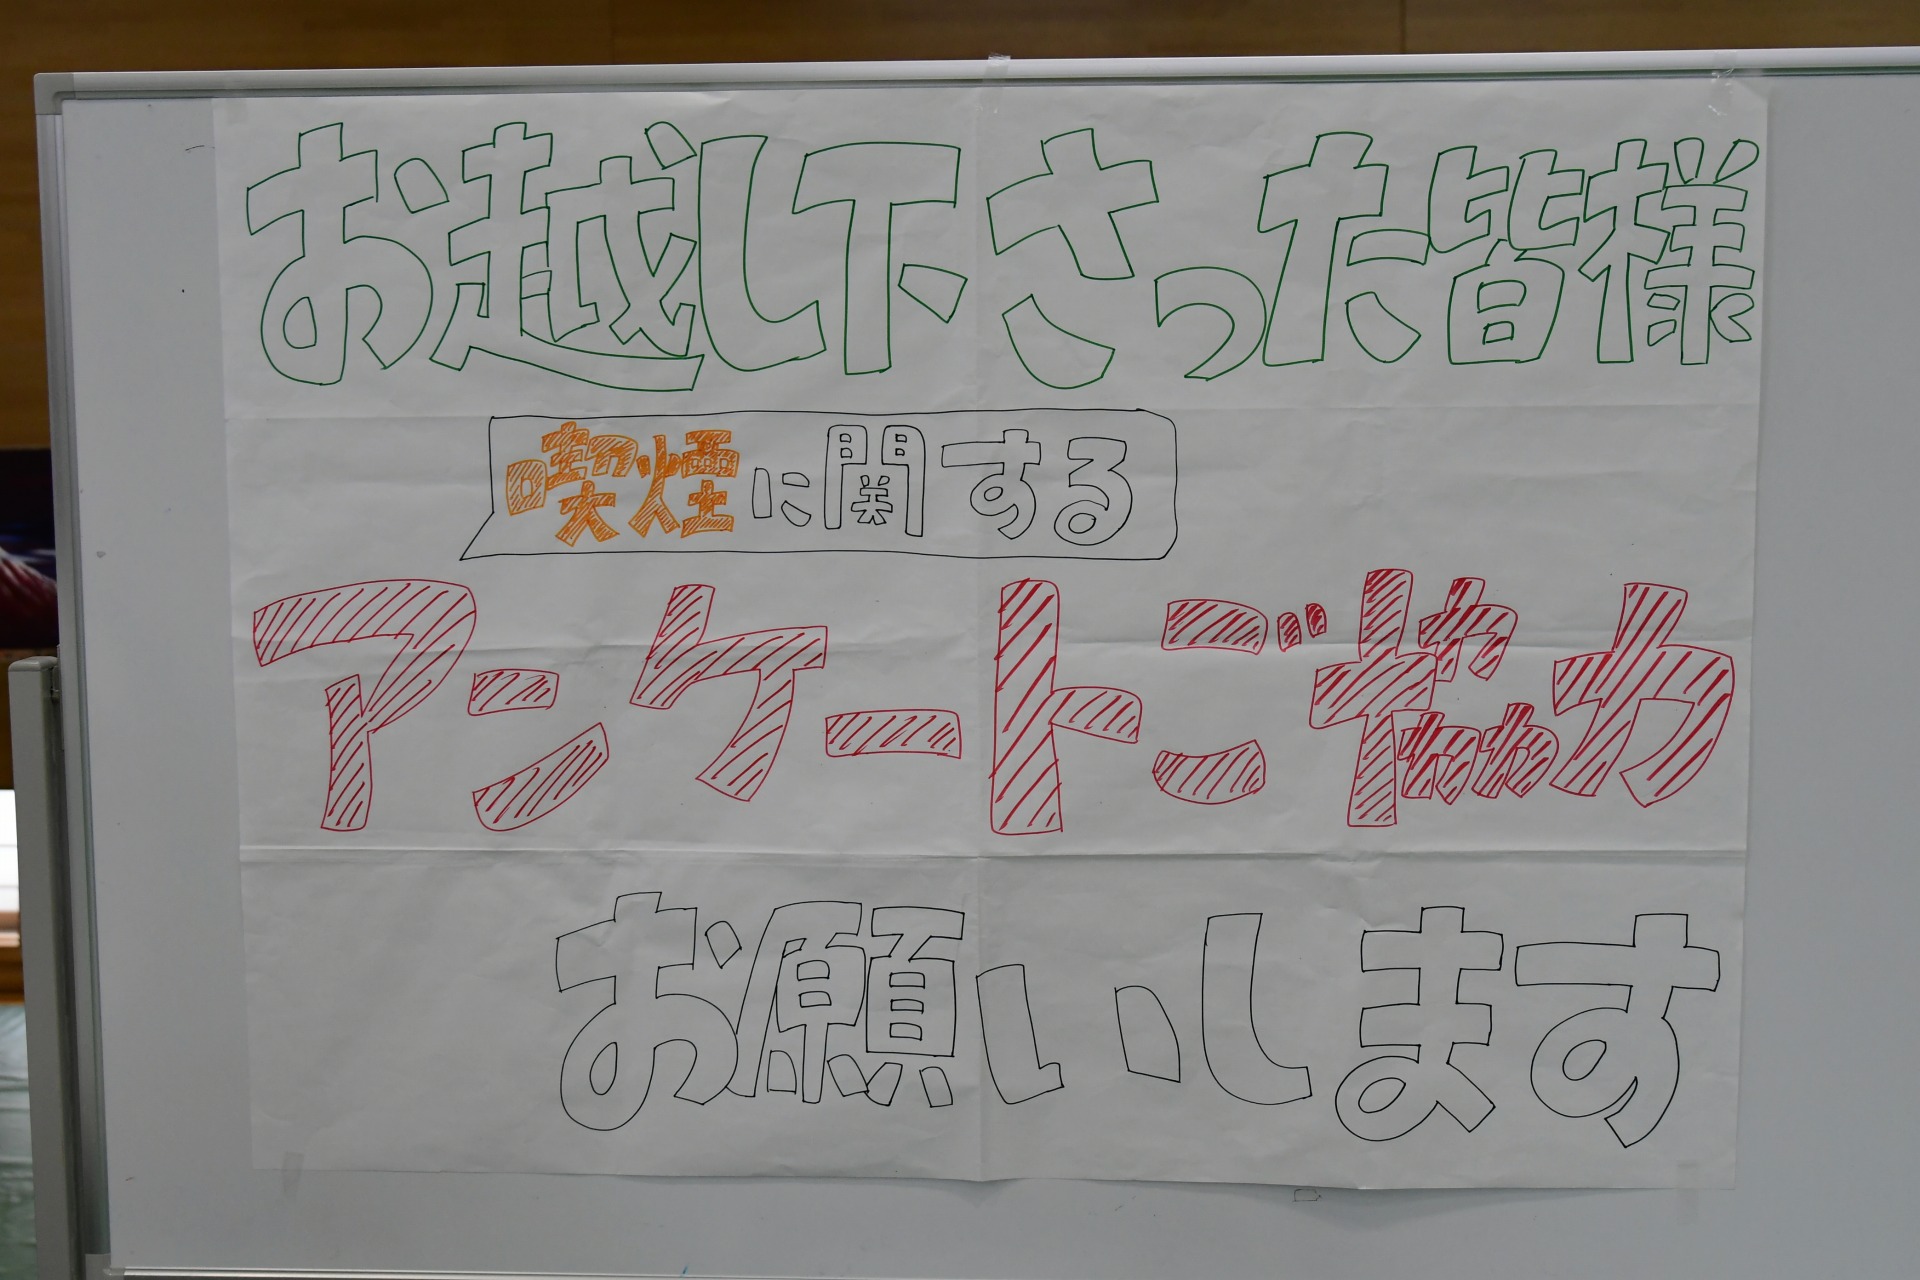 お越し下さった皆様
喫煙に関する
アンケートご協力
お願いします